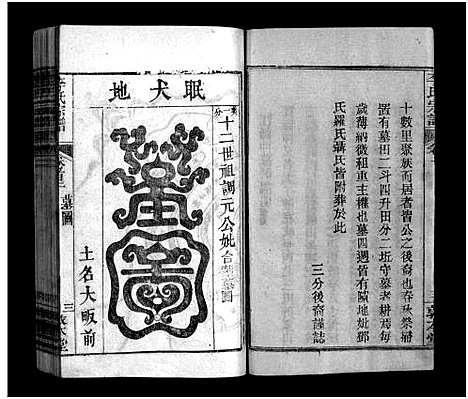 十數里聚族而居者皆公之後裔也春祭增
置有墓田二斗四升田分二坵守墓者耕焉每
歲薄納微租重主權也墓四週皆有隙地妣鄧
氏羅氏聶氏皆附葬於此
三分後裔謹誌
李氏宗譜
眠犬地
十二世祖調元公妣合葬墓圖
土名大畈前
墓圖
三